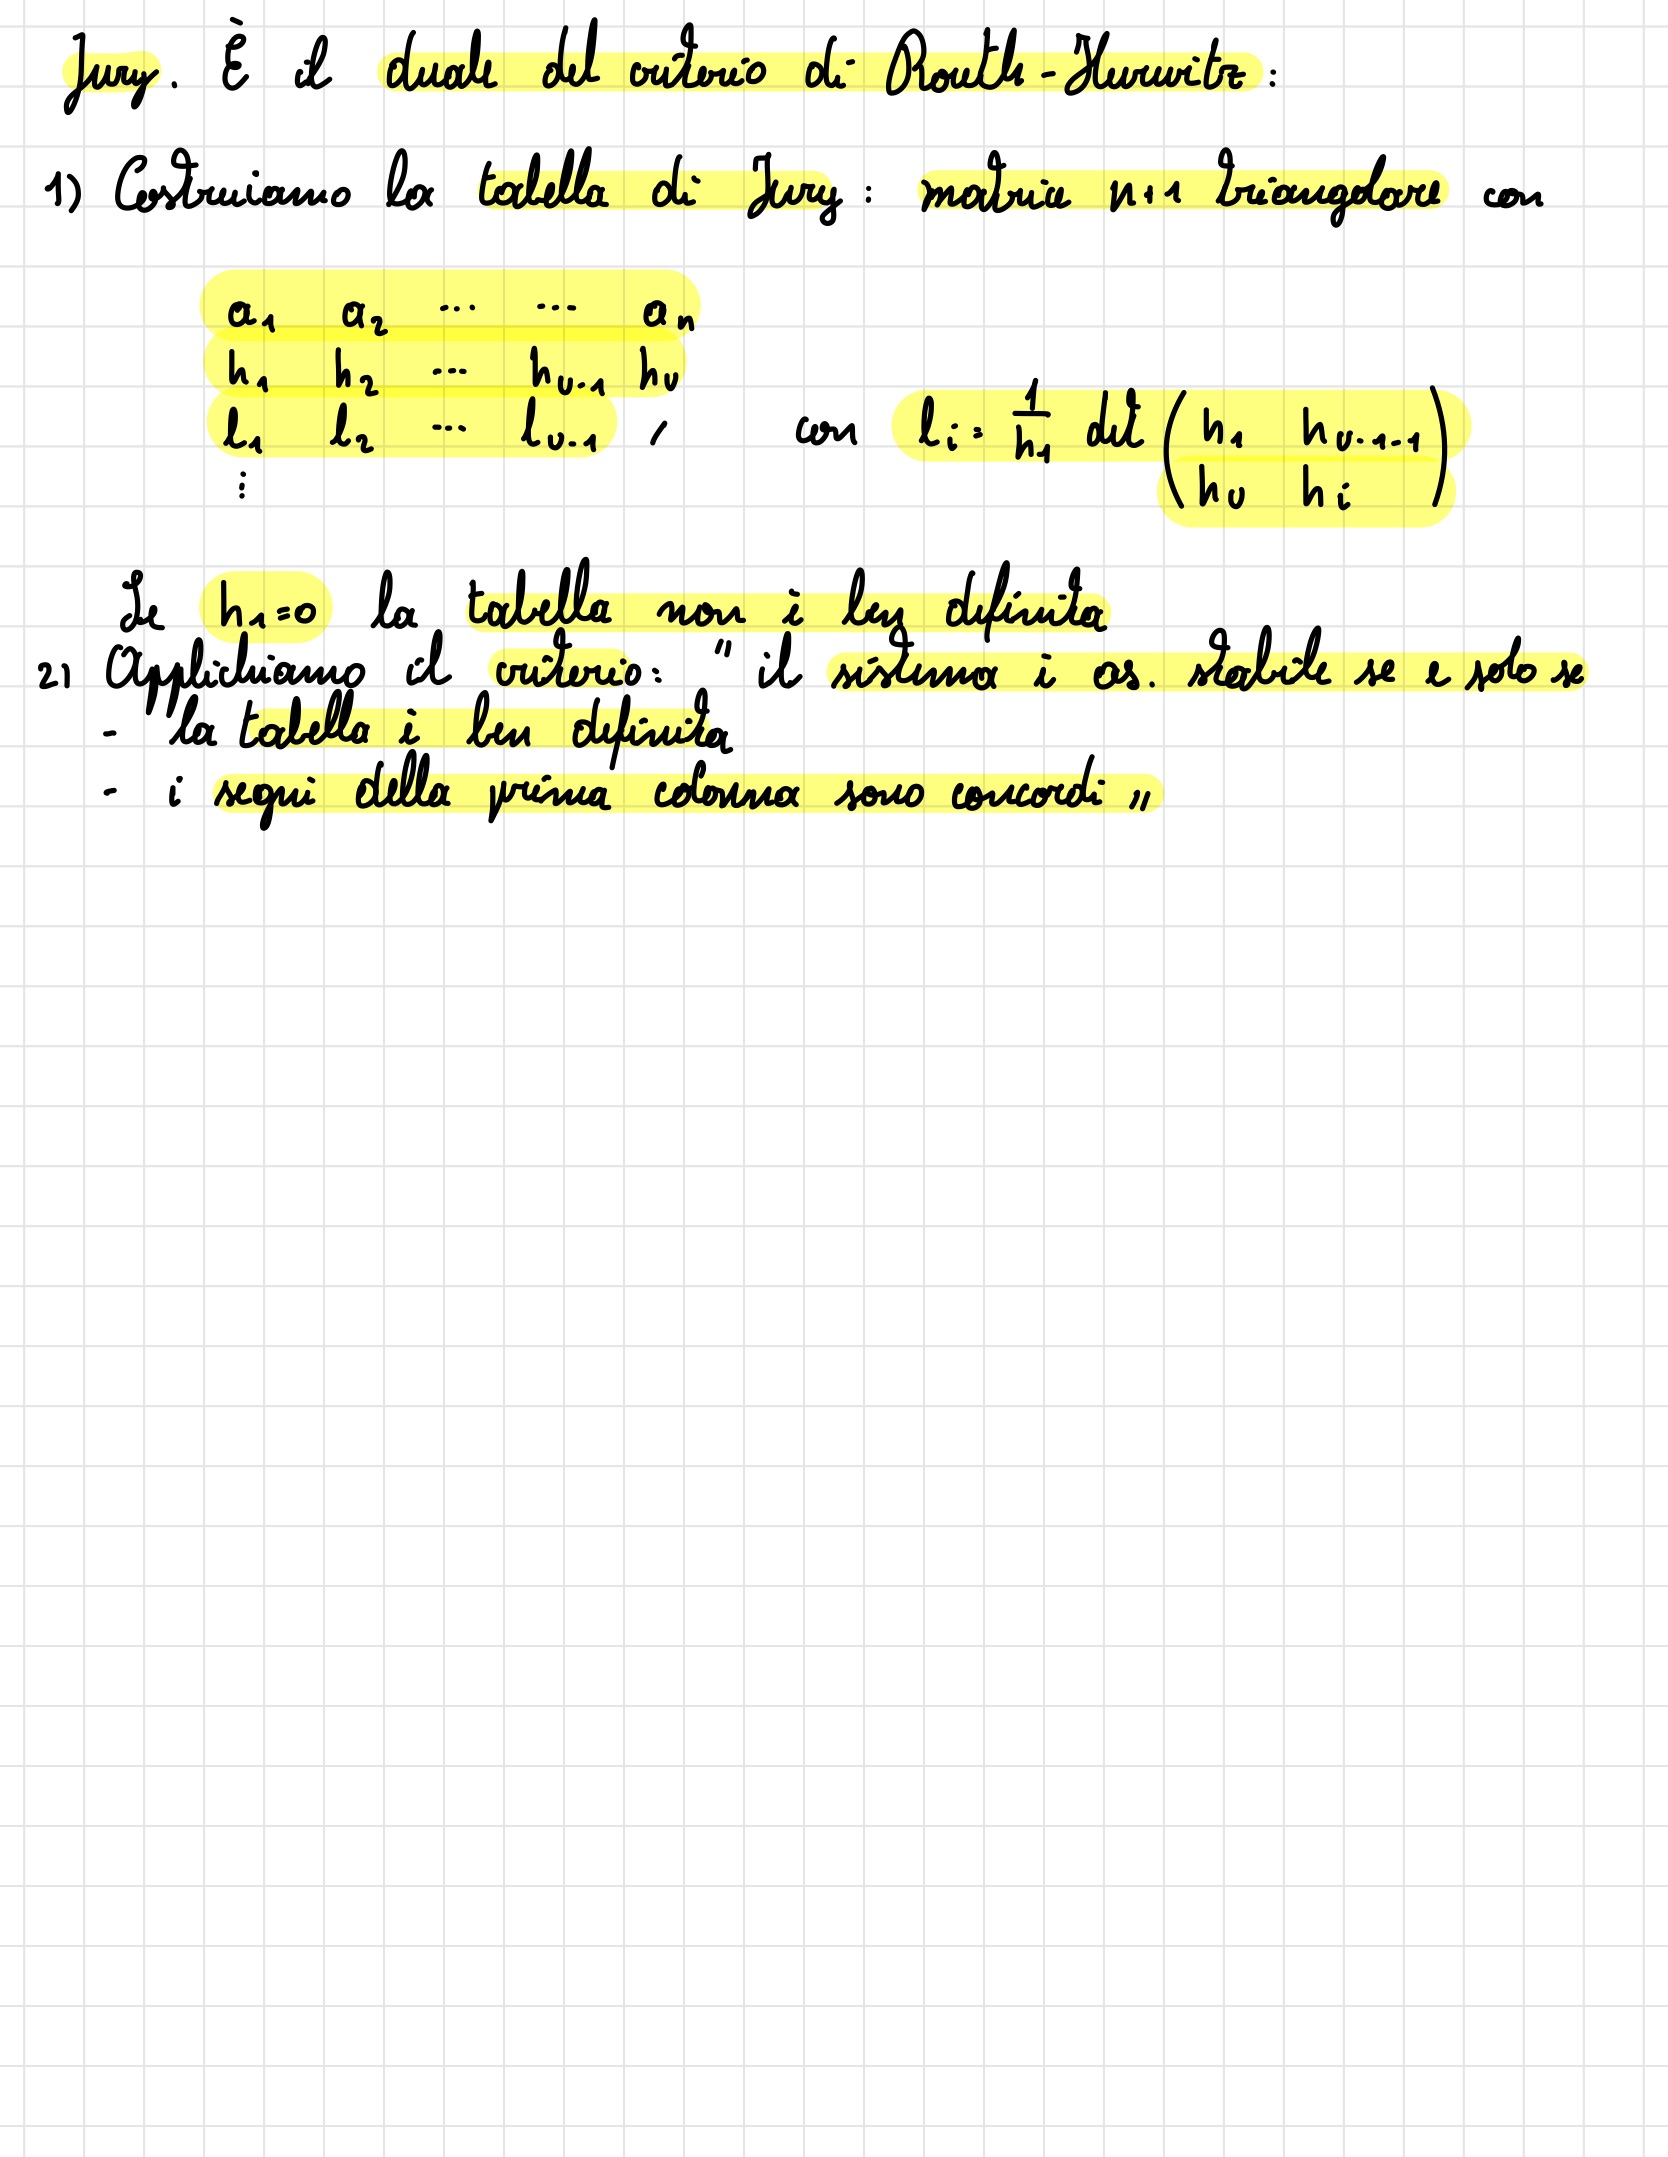 Jury. È il duale del criterio di Routh-Hurwitz:
1) Costruiamo la tabella di Jury: matrice n+1 triangolare con
a₁ a₂ ... ... aₙ
h₁ h₂ ... hᵥ₋₁ hᵥ
l₁ l₂ ... lᵥ₋₁ , con lᵢ = 1/h₁ det (h₁ hᵥ₋₁₋₁
hᵥ hᵢ)
⋮
Se h₁=0 la tabella non è ben definita
2) Applichiamo il criterio: "il sistema è as. stabile se e solo se
- la tabella è ben definita
- i segni della prima colonna sono concordi"